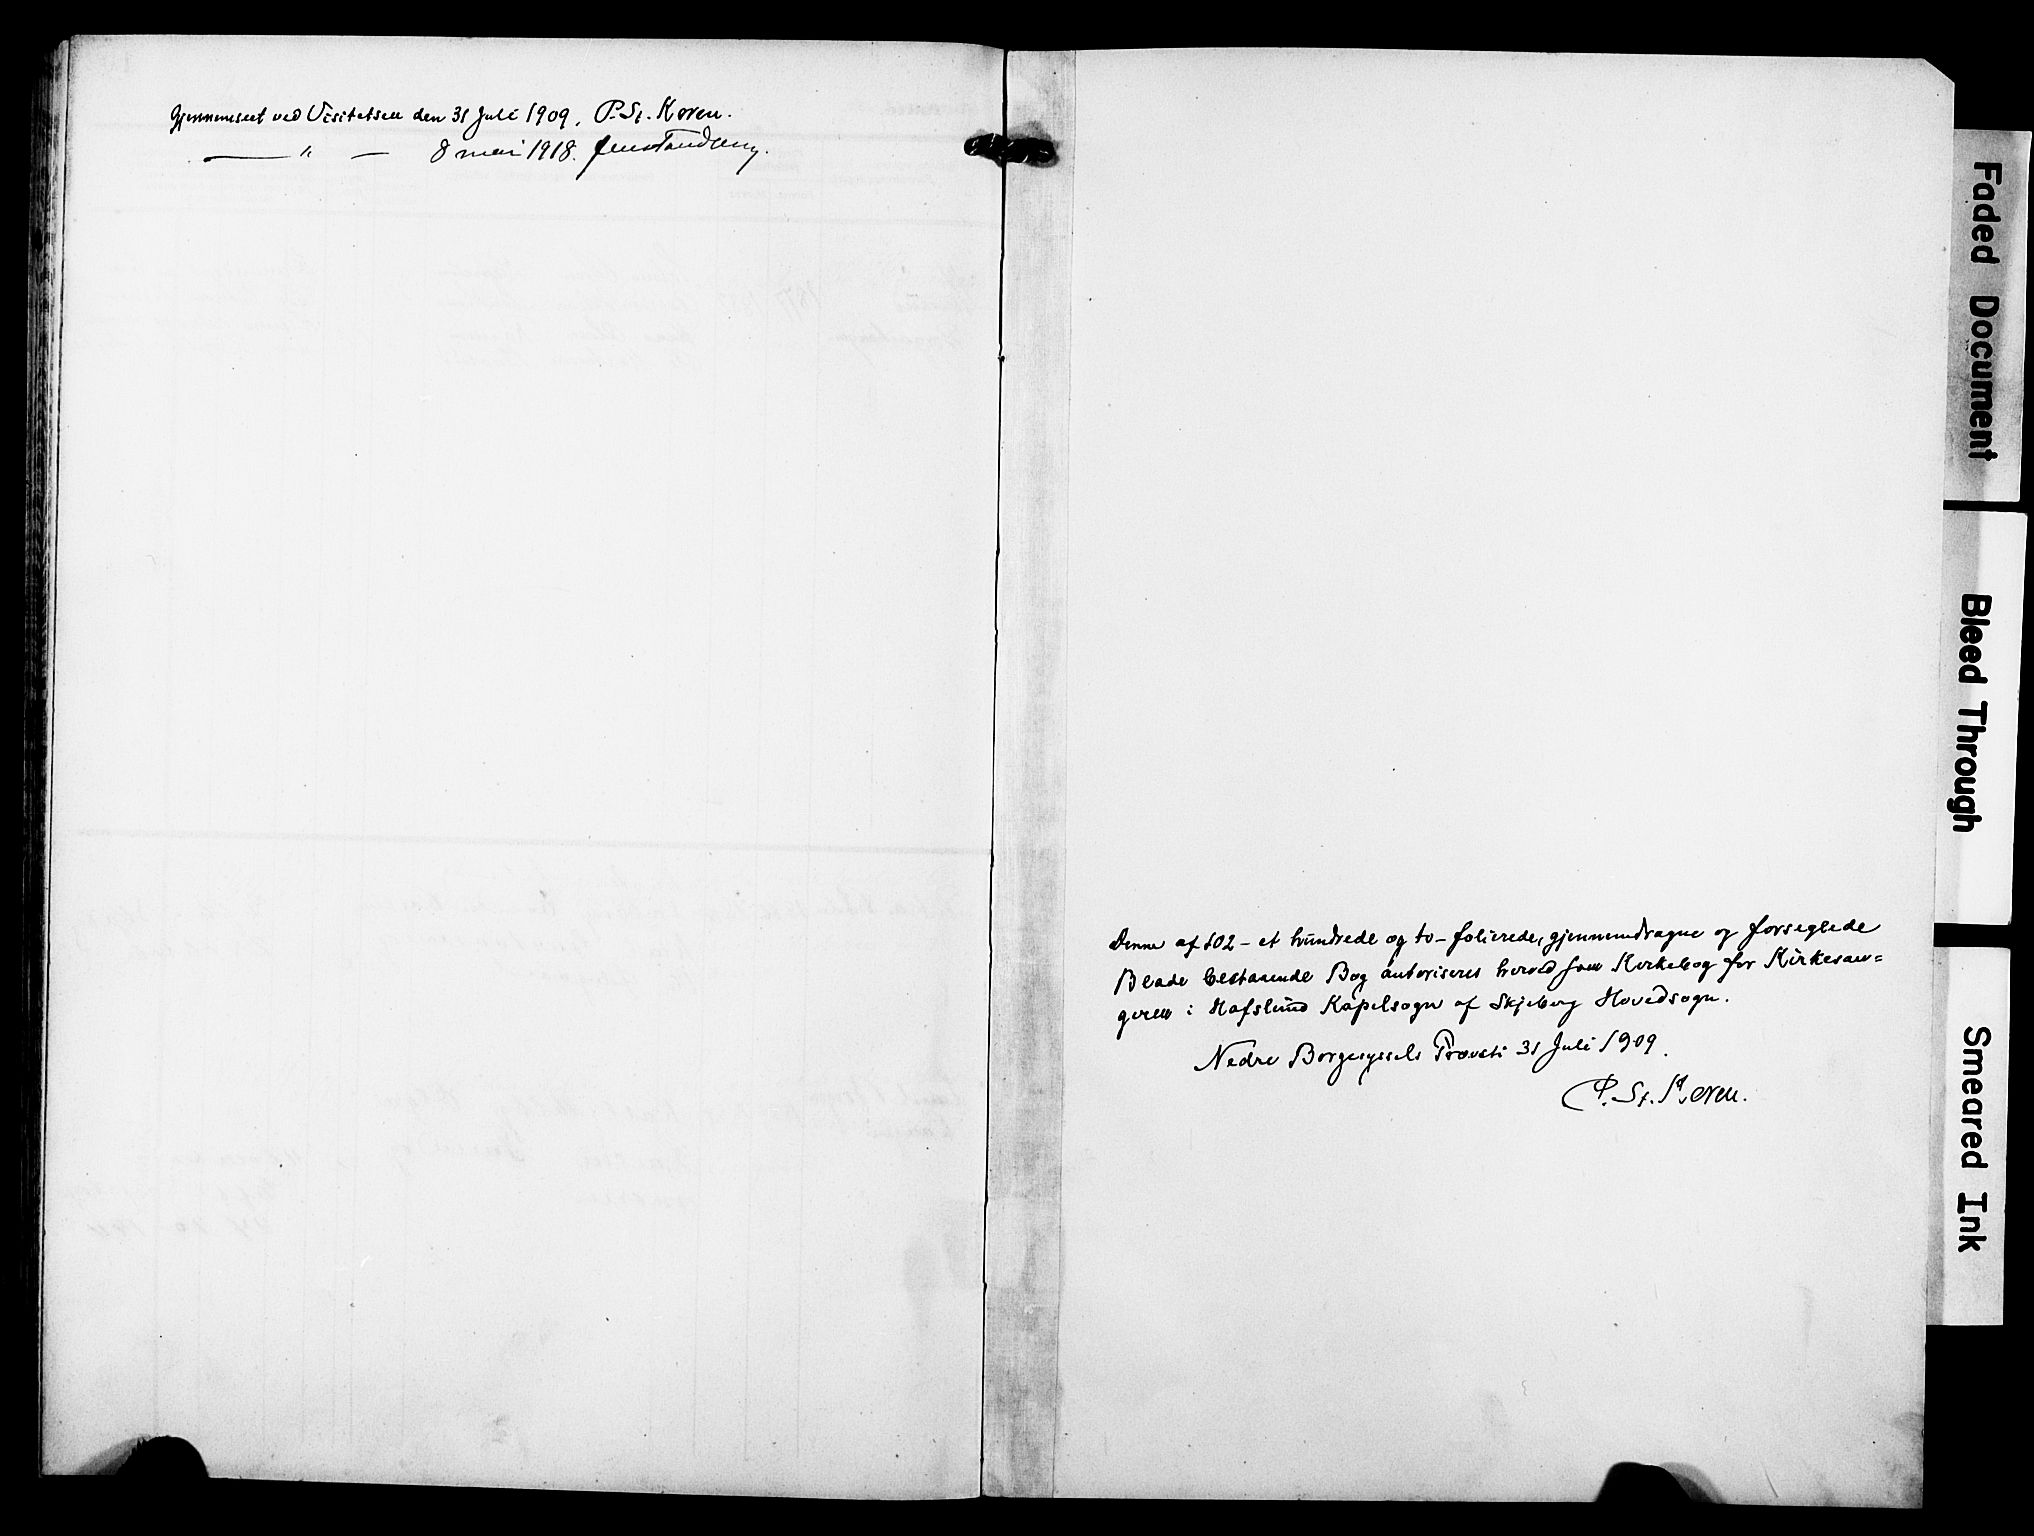 Gjennemseet ved Visitatsen den 31 Juli 1909. P. St. Koren.
— " — 8 mai 1918. Jens Tandberg.
Denne af 102 - et hundrede og to - folierede, gjennemdragne og forseglede
Blade bestaaende Bog autoriseres herved som Kirkebog for Kirkesan=
geren i Hafslund Kapelsogn af Skjeberg Hovedsogn.
Nedre Borgesyssels Provsti 31 Juli 1909.
P. St. Koren.
Faded Document
Bleed Through
Smeared Ink